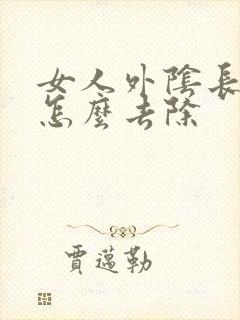 女人外陰長
怎麼去除
賈邁勒